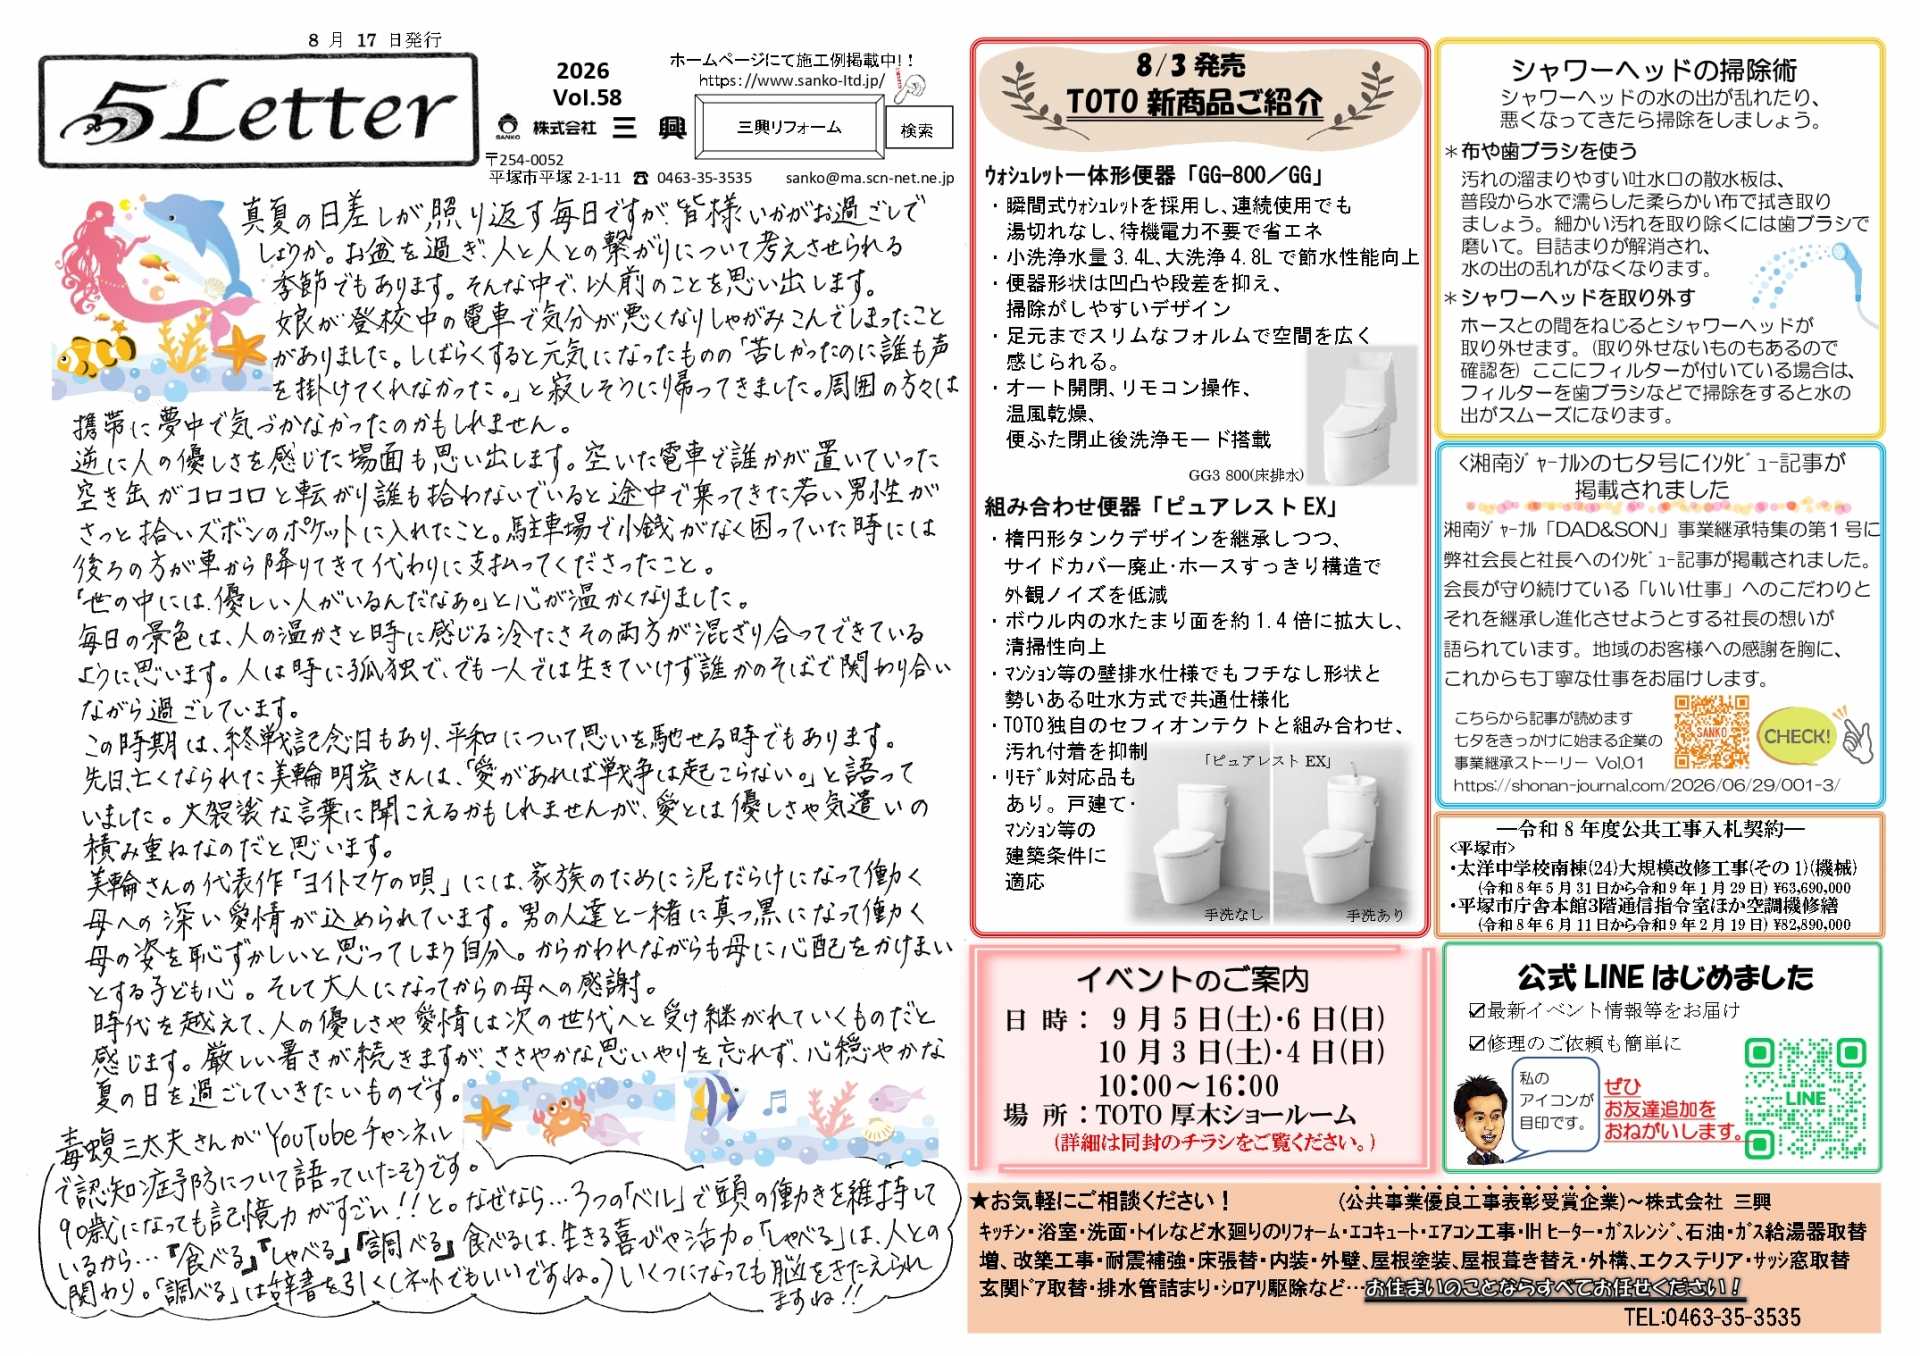 8 月 17 日発行
5 Letter
2026
Vol.58
ホームページにて施工例掲載中!!
https://www.sanko-ltd.jp/
SANKO 株式会社 三 興
三興リフォーム
検索
〒254-0052
平塚市平塚 2-1-11 ☎ 0463-35-3535 sanko@ma.scn-net.ne.jp
真夏の日差しが照り返す毎日ですが、皆様いかがお過ごしで
しょうか。お盆を過ぎ、人と人との繋がりについて考えさせられる
季節でもあります。そんな中で、以前のことを思い出します。
娘が登校中の電車で気分が悪くなりしゃがみこんでしまったこと
がありました。しばらくすると元気になったものの「苦しかったのに誰も声
を掛けてくれなかった。」と寂しそうに帰ってきました。周囲の方々は
携帯に夢中で気づかなかったのかもしれません。
逆に人の優しさを感じた場面も思い出します。空いた電車で誰かが置いていった
空き缶がコロコロと転がり誰も拾わないでいると途中で乗ってきた若い男性が
さっと拾いズボンのポケットに入れたこと。駐車場で小銭がなく困っていた時には
後ろの方が車から降りてきて代わりに支払ってくださったこと。
「世の中には、優しい人がいるんだなあ。」と心が温かくなりました。
毎日の景色は、人の温かさと時に感じる冷たさその両方が混ざり合ってできている
ように思います。人は時に孤独で、でも一人では生きていけず誰かのそばで関わり合い
ながら過ごしています。
この時期は、終戦記念日もあり、平和について思いを馳せる時でもあります。
先日、亡くなられた美輪明宏さんは、「愛があれば戦争は起こらない。」と語って
いました。大袈裟な言葉に聞こえるかもしれませんが、愛とは優しさや気遣いの
積み重ねなのだと思います。
美輪さんの代表作「ヨイトマケの唄」には、家族のために泥だらけになって働く
母への深い愛情が込められています。男の人達と一緒に真っ黒になって働く
母の姿を恥ずかしいと思ってしまう自分。からかわれながらも母に心配をかけまい
とする子ども心。そして大人になってからの母への感謝。
時代を越えて、人の優しさや愛情は次の世代へと受け継がれていくものだと
感じます。厳しい暑さが続きますが、ささやかな思いやりを忘れず、心穏やかな
夏の日を過ごしていきたいものです。
毒蝮三太夫さんがYouTubeチャンネル
で認知症予防について語っていたそうです。
90歳になっても記憶力がすごい!!と。なぜなら…3つの「ベル」で頭の働きを維持して
いるから…『食べる』『しゃべる』『調べる』食べるは、生きる喜びや活力。「しゃべる」は、人との
関わり。「調べる」は辞書を引く(ネットでもいいですね。)いくつになっても脳をきたえられ
ますね!!
8/3 発売
TOTO 新商品ご紹介
ｳｫｼｭﾚｯﾄ一体形便器「GG-800／GG」
・瞬間式ｳｫｼｭﾚｯﾄを採用し、連続使用でも
湯切れなし、待機電力不要で省エネ
・小洗浄水量 3.4L、大洗浄 4.8L で節水性能向上
・便器形状は凹凸や段差を抑え、
掃除がしやすいデザイン
・足元までスリムなフォルムで空間を広く
感じられる。
・オート開閉、リモコン操作、
温風乾燥、
便ふた閉止後洗浄モード搭載
GG3 800(床排水)
組み合わせ便器「ピュアレスト EX」
・楕円形タンクデザインを継承しつつ、
サイドカバー廃止･ホースすっきり構造で
外観ノイズを低減
・ボウル内の水たまり面を約 1.4 倍に拡大し、
清掃性向上
・ﾏﾝｼｮﾝ等の壁排水仕様でもフチなし形状と
勢いある吐水方式で共通仕様化
・TOTO 独自のセフィオンテクトと組み合わせ、
汚れ付着を抑制
・ﾘﾓﾃﾞﾙ対応品も
あり。戸建て･
ﾏﾝｼｮﾝ等の
建築条件に
適応
「ピュアレスト EX」
手洗なし
手洗あり
イベントのご案内
日 時： 9 月 5 日(土)･6 日(日)
10 月 3 日(土)･4 日(日)
10：00～16：00
場 所：TOTO 厚木ショールーム
(詳細は同封のチラシをご覧ください。)
シャワーヘッドの掃除術
シャワーヘッドの水の出が乱れたり、
悪くなってきたら掃除をしましょう。
＊布や歯ブラシを使う
汚れの溜まりやすい吐水口の散水板は、
普段から水で濡らした柔らかい布で拭き取り
ましょう。細かい汚れを取り除くには歯ブラシで
磨いて。目詰まりが解消され、
水の出の乱れがなくなります。
＊シャワーヘッドを取り外す
ホースとの間をねじるとシャワーヘッドが
取り外せます。(取り外せないものもあるので
確認を) ここにフィルターが付いている場合は、
フィルターを歯ブラシなどで掃除をすると水の
出がスムーズになります。
<湘南ｼﾞｬｰﾅﾙ>の七夕号にｲﾝﾀﾋﾞｭｰ記事が
掲載されました
湘南ｼﾞｬｰﾅﾙ「DAD&SON」事業継承特集の第１号に
弊社会長と社長へのｲﾝﾀﾋﾞｭｰ記事が掲載されました。
会長が守り続けている「いい仕事」へのこだわりと
それを継承し進化させようとする社長の想いが
語られています。地域のお客様への感謝を胸に、
これからも丁寧な仕事をお届けします。
こちらから記事が読めます
七夕をきっかけに始まる企業の
事業継承ストーリー Vol.01
SANKO
CHECK!
https://shonan-journal.com/2026/06/29/001-3/
―令和 8 年度公共工事入札契約―
<平塚市>
･太洋中学校南棟(24)大規模改修工事(その 1)(機械)
(令和 8 年 5 月 31 日から令和 9 年 1 月 29 日) ¥63,690,000
･平塚市庁舎本館3階通信指令室ほか空調機修繕
(令和 8 年 6 月 11 日から令和 9 年 2 月 19 日) ¥82,890,000
公式 LINE はじめました
☑最新イベント情報等をお届け
☑修理のご依頼も簡単に
私の
アイコンが
目印です。
ぜひ
お友達追加を
おねがいします。
LINE
★お気軽にご相談ください！ (公共事業優良工事表彰受賞企業)～株式会社 三興
ｷｯﾁﾝ・浴室・洗面・ﾄｲﾚなど水廻りのﾘﾌｫｰﾑ・ｴｺｷｭｰﾄ・ｴｱｺﾝ工事・IH ﾋｰﾀｰ・ｶﾞｽﾚﾝｼﾞ、石油・ｶﾞｽ給湯器取替
増、改築工事・耐震補強・床張替・内装・外壁、屋根塗装、屋根葺き替え・外構、エクステリア・ｻｯｼ窓取替
玄関ﾄﾞｱ取替・排水管詰まり・ｼﾛｱﾘ駆除など…お住まいのことならすべてお任せください！
TEL:0463-35-3535